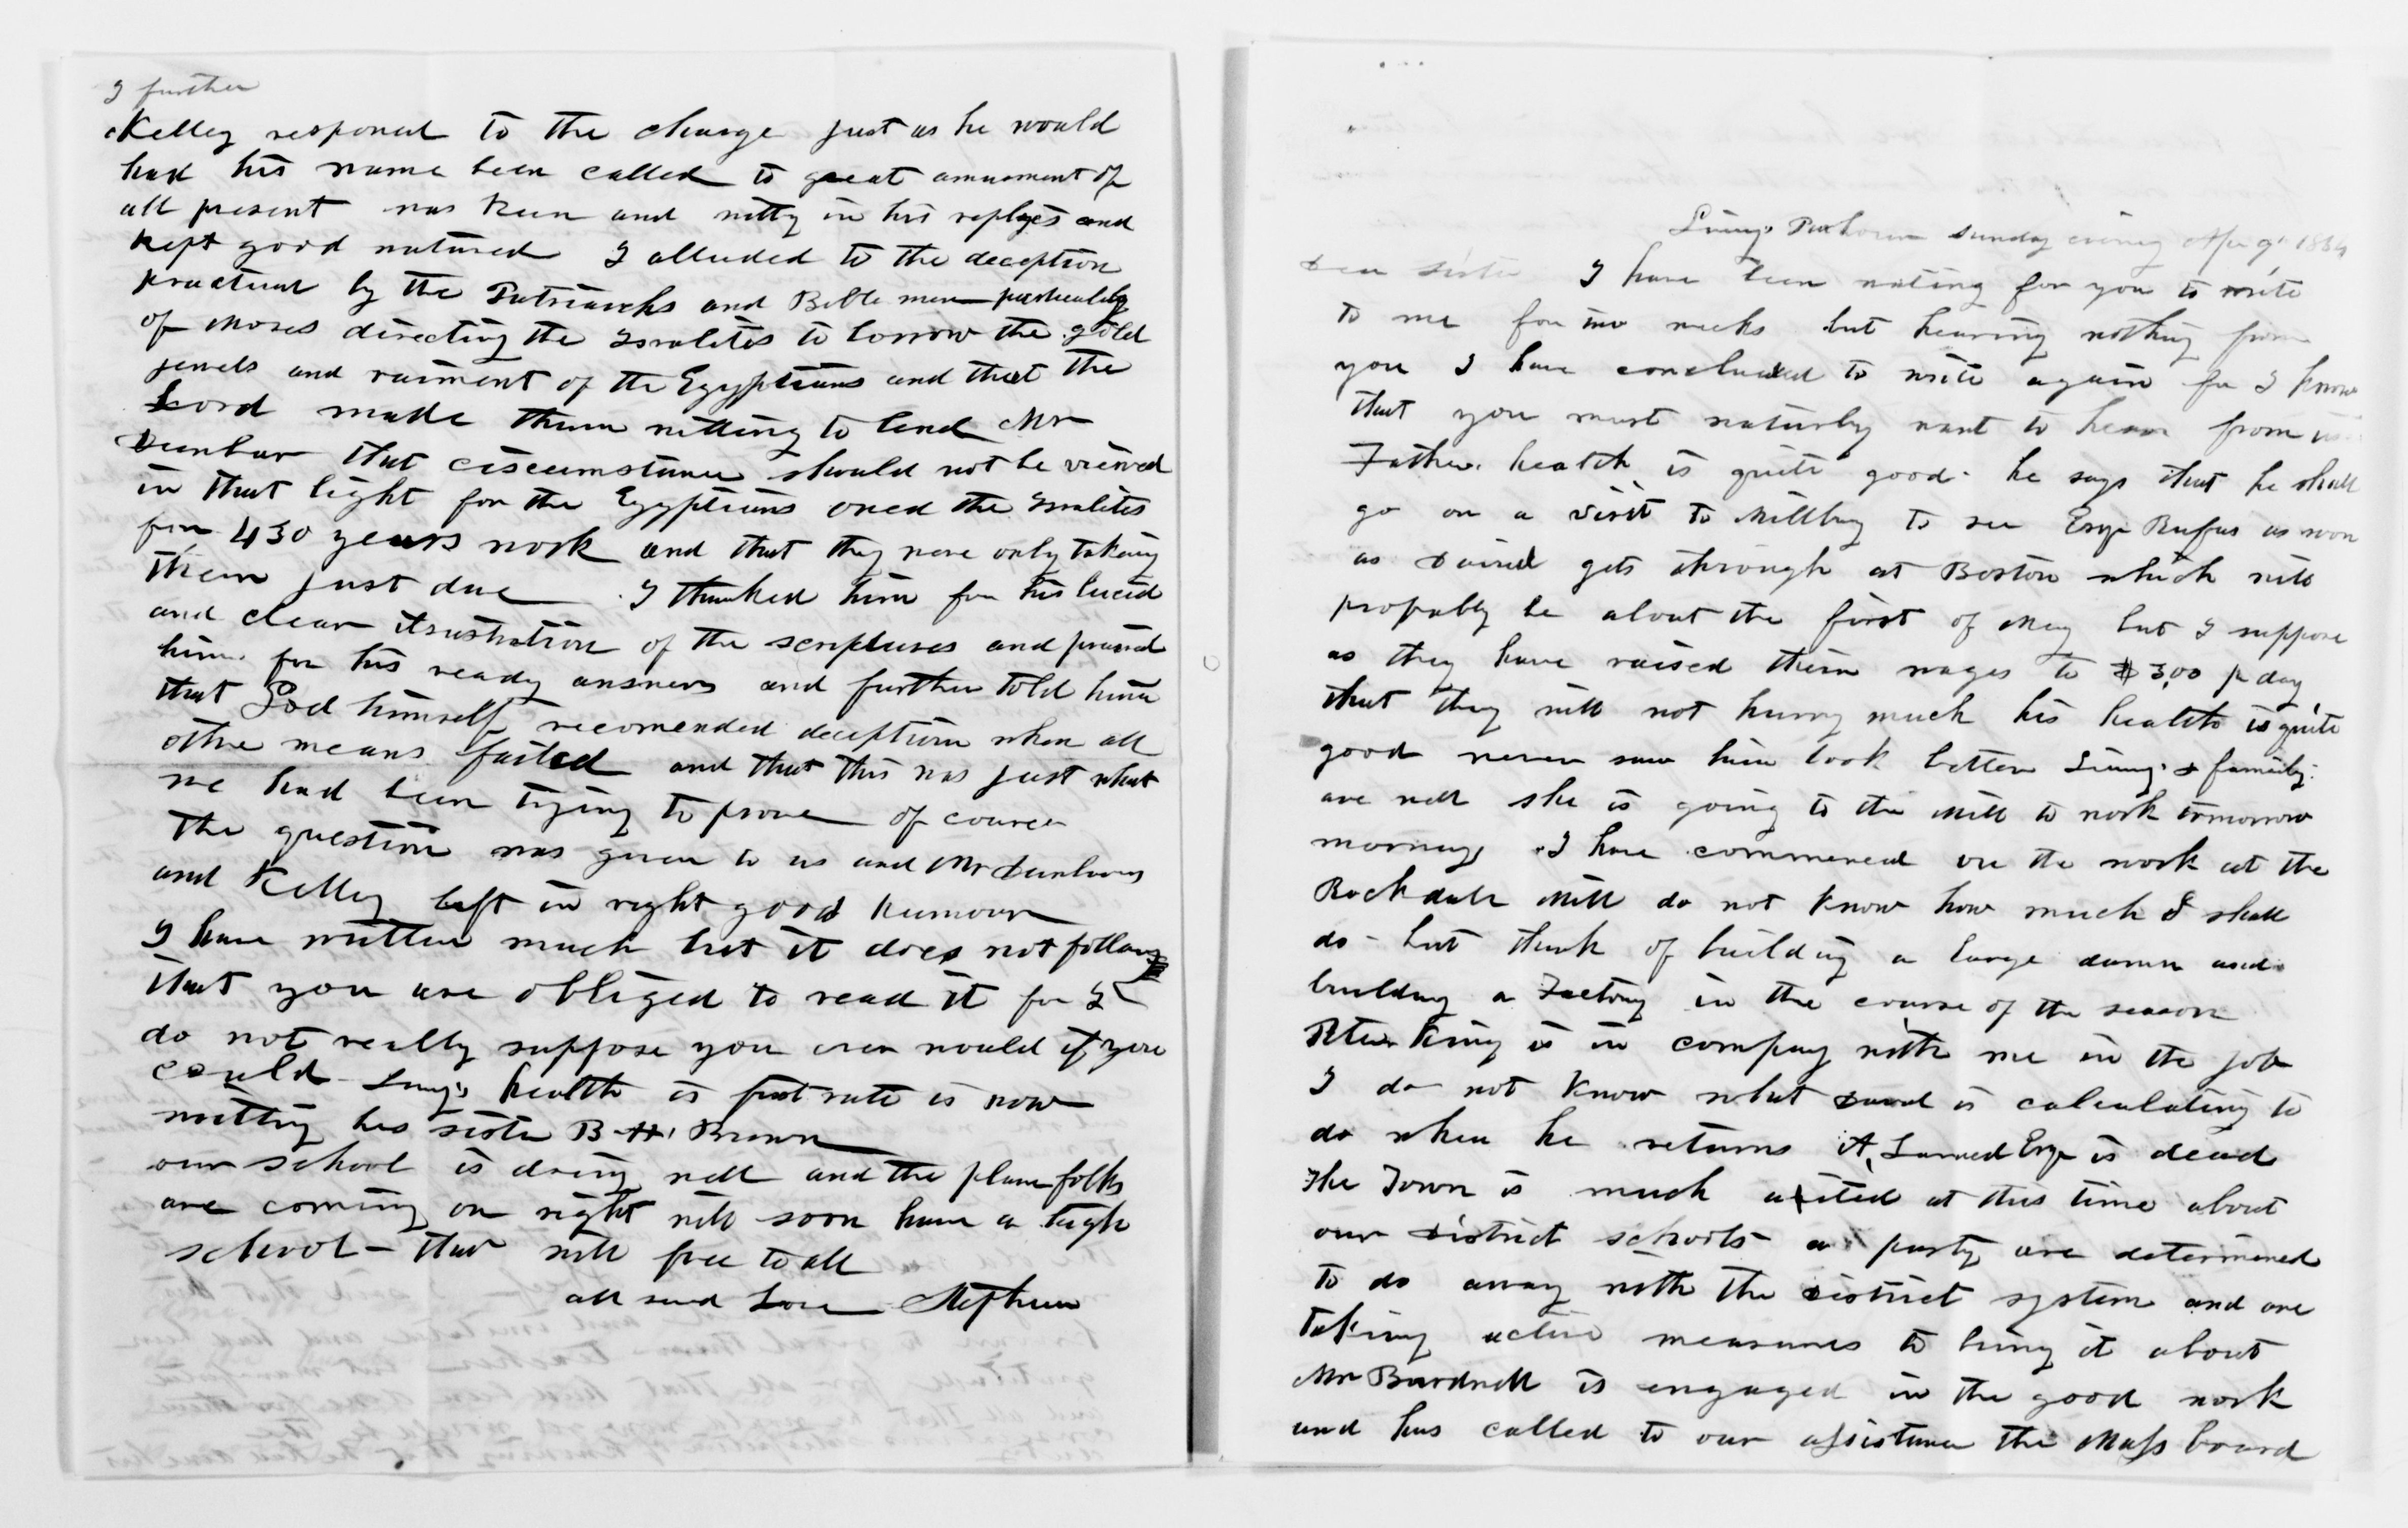 I further
Kelley responed to the charge just as he would
had his name been called to great amusment of
all present was keen and witty in his replyes and
kept good natured I alluded to the deception
practised by the Patriarchs and Bible men particularly
of Moses directing the Isralites to borrow the gold
jewels and raiment of the Egyptians and that the
Lord made them willing to lend Mr
Dunbar that circumstance should not be viewed
in that light for the Egyptians owed the Isralites
for 430 years work and that they were only taking
their just due I thanked him for his lucid
and clear of the scriptures and praised
him for his ready answers and further told him
that God himself recomended deception when all
other means failed and that this was just what
we had been trying to prove of course
the question was given to us and Mr Dunbar
and Kelley left in right good humour
I have written much but it does not follow
that you are obliged to read it for I
do not really suppose you ever would if you
could Limy's health is first rate is now
writting his sister B H Brown
our school is doing well and the plain folks
are coming on right will soon have a high
school - that will free to all
all send Love Stephen
Limy's Sunday evening Apr 9 1854
Dear sister I have been waiting for you to write
to me for two weeks but hearing nothing from
you I have concluded to write again for I know
that you must naturly want to hear from us
Father health is quite good he says that he shall
go on a visit to Millbury to see Esqr Rufus as soon
as David gets through at Boston which will
propably be about the first of May but I suppose
as they have raised their wages to $3,00 pr day
that they will not hurry much his health is quite
good never saw him look better Limy's & family
are well she is going to the Mill to work tomorrow
morning I have commenced on the work at the
Rockdale Mill do not know how much I shall
do - but think of building a large damn and
building a Factory in the course of the season
Peter King is in company with me in the job
I do not know what David is calculating to
do when he returns A, Larned Esqr is dead
The Town is much axited at this time about
our District schools a party are determined
to do away with the District system and are
taking active measures to bring it about
Mr Bardwell is engaged in the good work
and has called to our assistance the Mass board